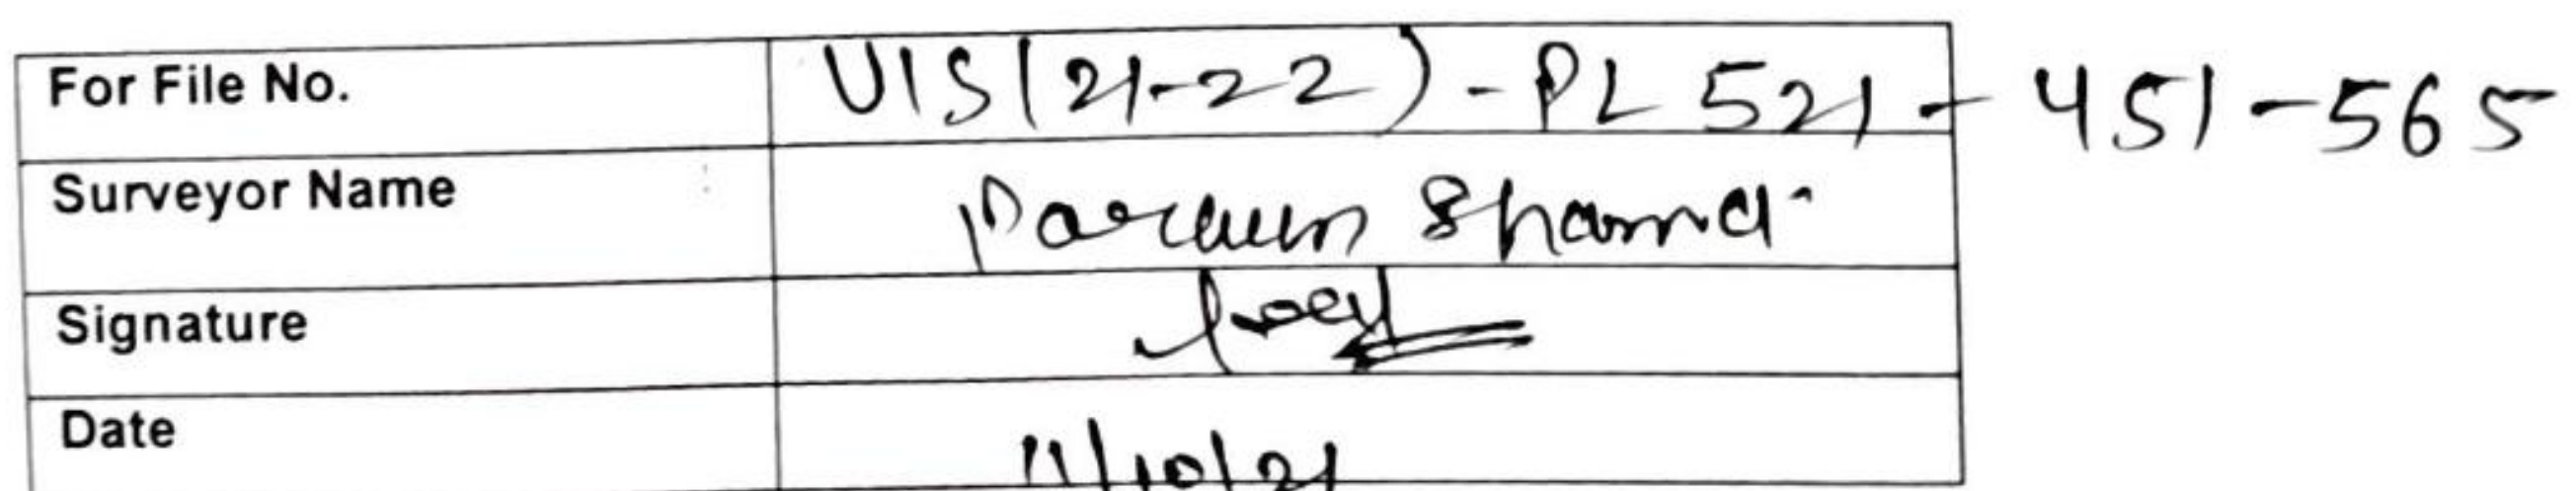 For File No. VIS(21-22)-PL521-451-565
Surveyor Name Sharma
Signature
Date 11/10/21